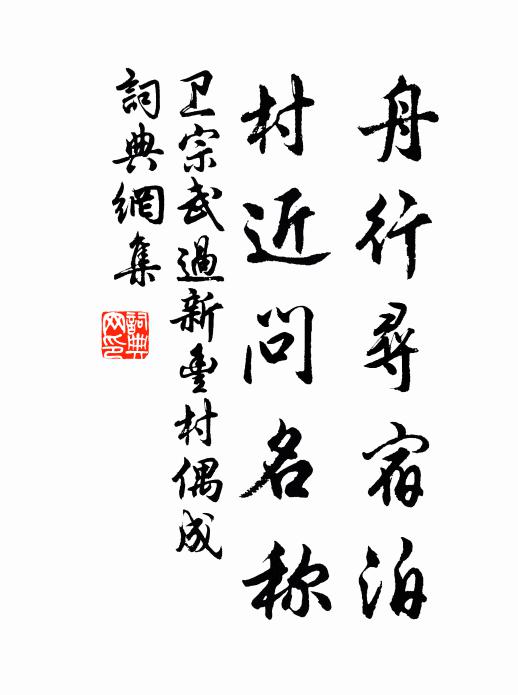 舟行尋宿泊
村近問名称
卫宗武過新豐村偶成
詞典網集
詞典网印